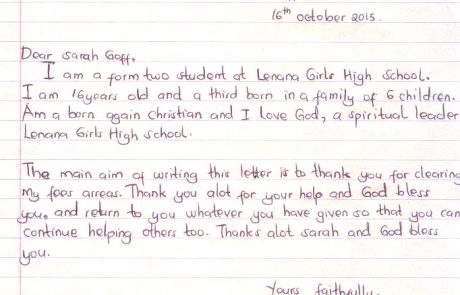 16th october 2015.
Dear Sarah Goff,
I am a form two student at Lenana Girls High School.
I am 16years old and a third born in a family of 6 children.
Am a born again christian and I love God, a spiritual leader
Lenana Girls High School.
The main aim of writing this letter is to thank you for clearing
my fees arreas. Thank you alot for your help and God bless
you, and return to you whatever you have given so that you can
continue helping others too. Thanks alot sarah and God bless
you.
Yours faithfully.